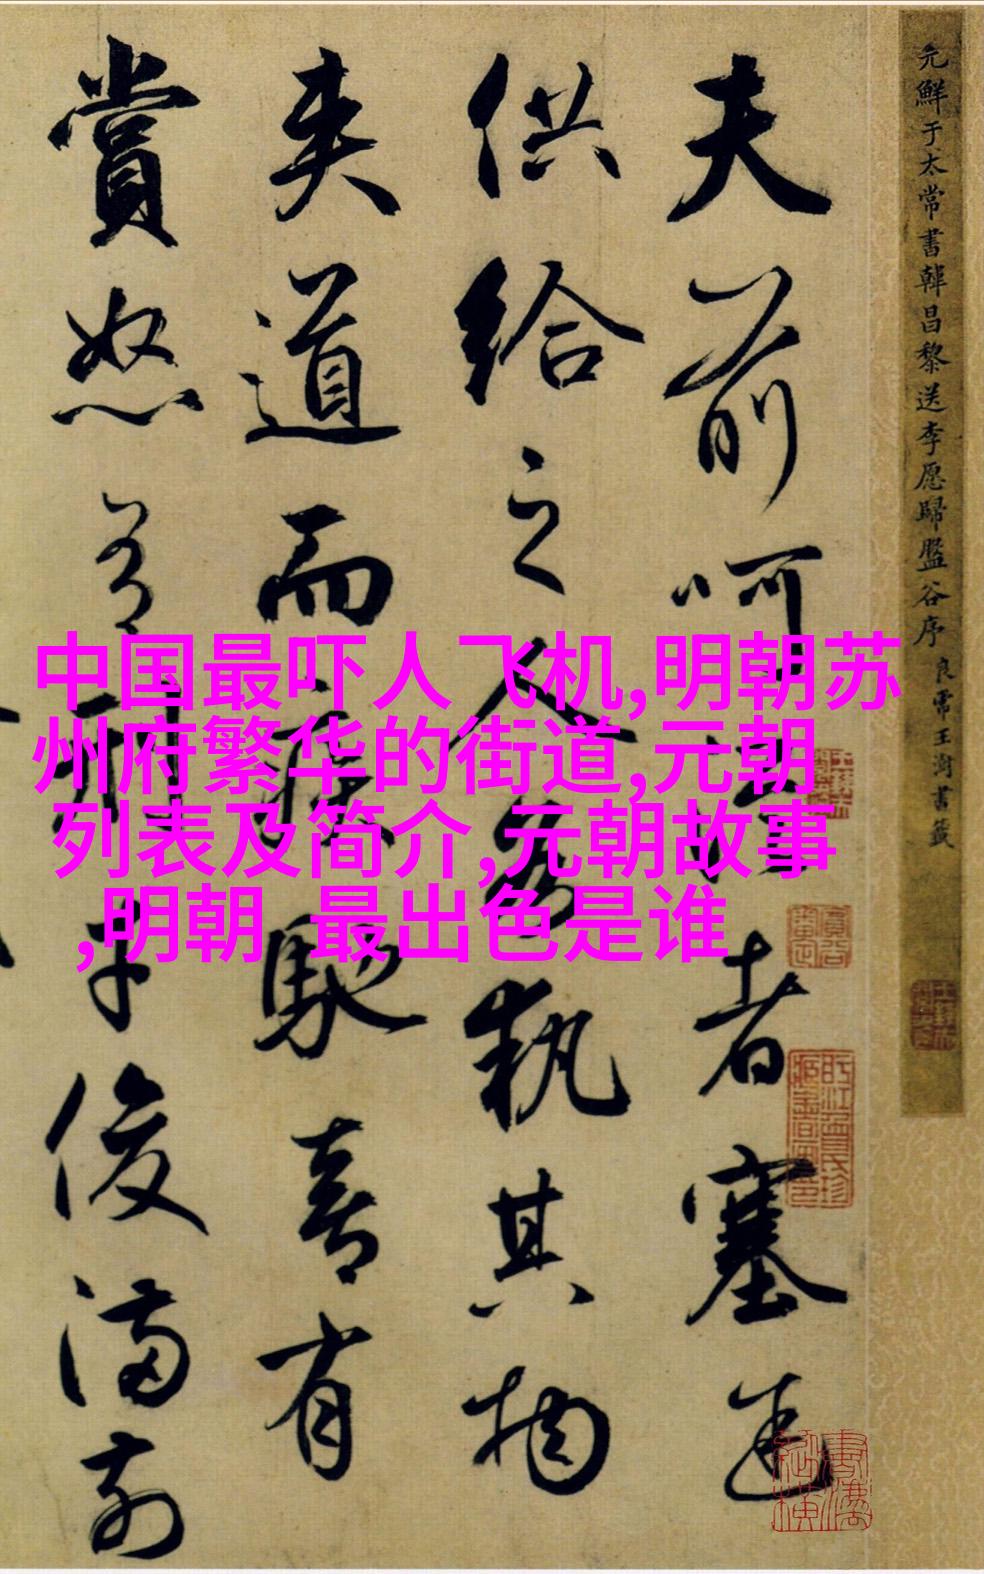 元鮮于太常書韓昌黎送李愿歸盤谷序
良常王澍書籤
夫前呵從者塞途
供給之人各執其物
夾道而疾馳喜有
賞怒有刑才俊滿前
中国最吓人飞机,明朝苏
州府繁华的街道,元朝
列表及简介,元朝故事
,明朝 最出色是谁